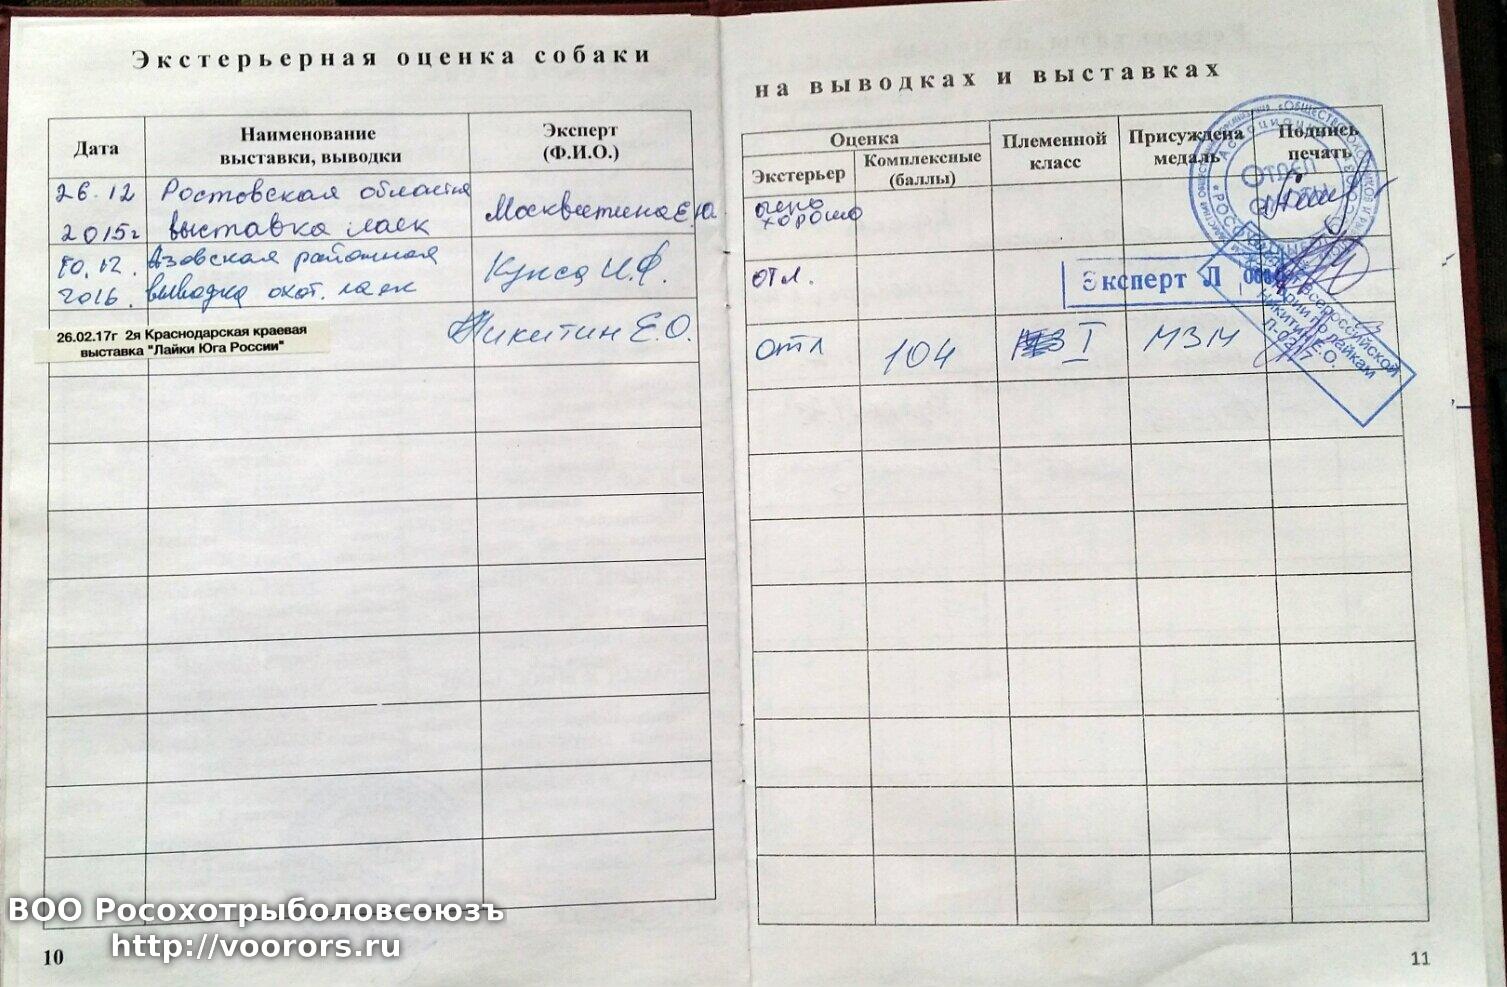 Экстерьерная оценка собаки
Дата
Наименование
выставки, выводки
Эксперт
(Ф.И.О.)
26.12
2015г
Ростовская областная
выставка лаек
Москвитина Е.Ю.
10.12.
2016.
Азовская районная
выводка охот. лаек
Кукса И.Ф.
26.02.17г 2я Краснодарская краевая
выставка "Лайки Юга России"
Никитин Е.О.
10
на выводках и выставках
Оценка
Экстерьер
Комплексные
(баллы)
Племенной
класс
Присуждена
медаль
Подпись
печать
очень
хорошо
отл.
Эксперт Л
отл
104
I
МЗМ
Всероссийской
категории по лайкам
Никитин Е.О.
Л-0217
11
ВОО Росохотрыболовсоюзъ
http://voorors.ru